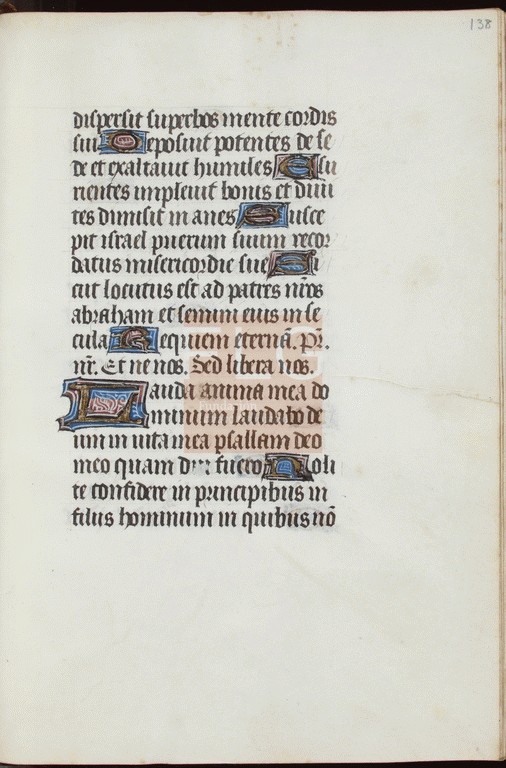 138
dispersit superbos mente cordis
sui Deposuit potentes de se
de et exaltauit humiles Esu
rientes impleuit bonis et diui
tes dimisit in anes Susce
pit israel puerum suum recor
datus misericordie sue Si
cut locutus est ad patres nr̄os
abraham et semini eius in se
cula Requiem eternā. Pr̄.
nr̄. Et ne nos. Sed libera nos.
Lauda anima mea do
minum laudabo de
um in uita mea psallam deo
meo quam diu fuero Noli
te confidere in principibus in
filiis hominum in quibus nō